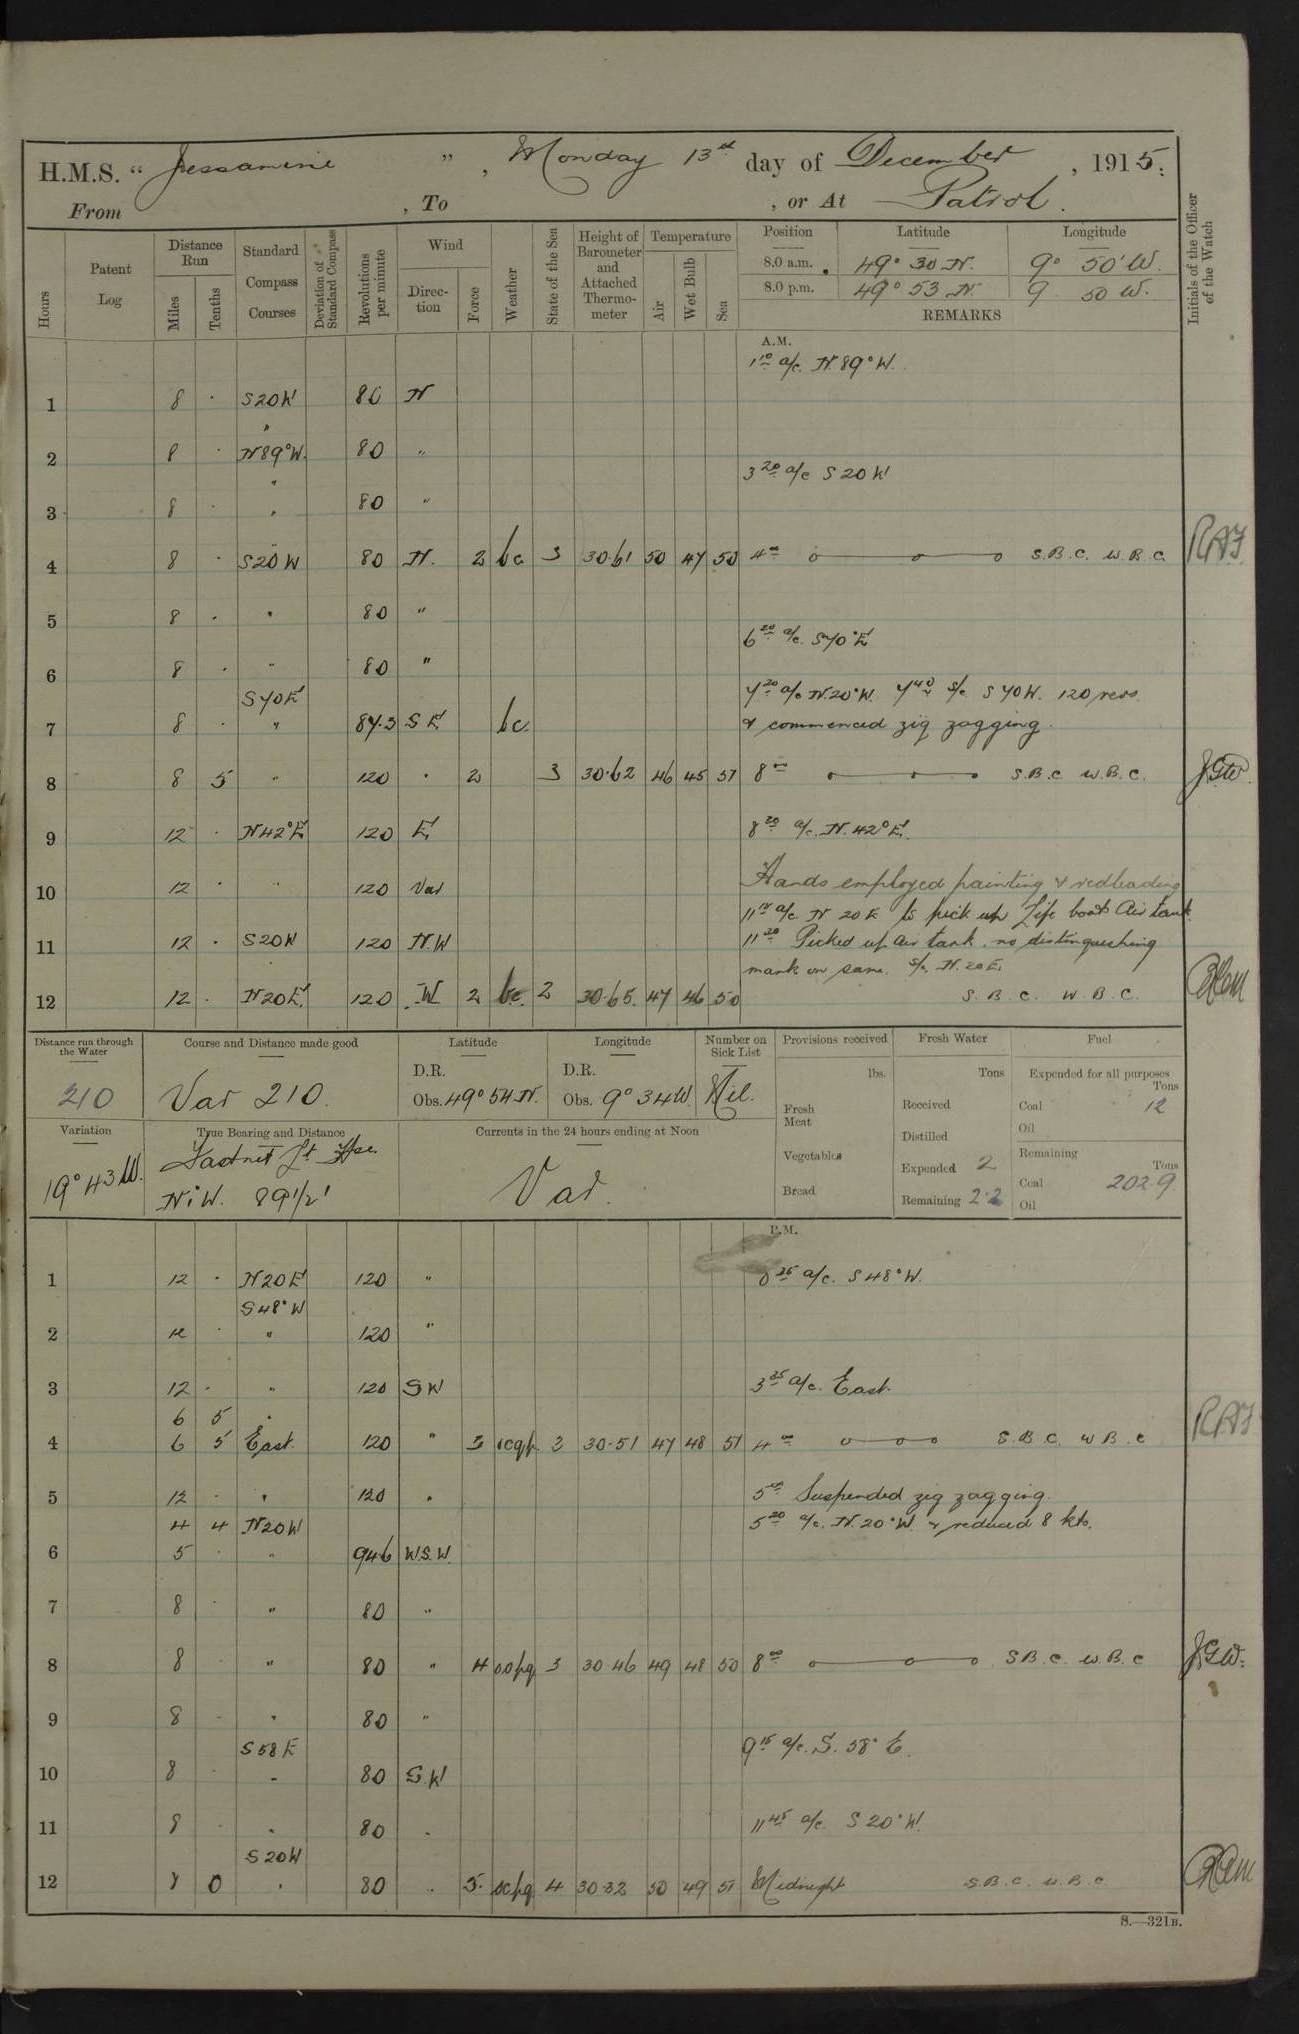 H.M.S. “ Jessamine ”, Monday 13th day of December, 1915.
From , To , or At Patrol.
Hours
Patent Log
Distance Run
Miles
Tenths
Standard Compass Courses
Deviation of Standard Compass
Revolutions per minute
Wind
Direction
Force
Weather
State of the Sea
Height of Barometer and Attached Thermometer
Temperature
Air
Wet Bulb
Sea
Position Latitude Longitude
8.0 a.m. 49° 30 N. 9° 50' W.
8.0 p.m. 49° 53 N. 9 50 W.
REMARKS
Initials of the Officer of the Watch
A.M.
1 10 a/c. N. 89° W.
1 8 · S20W 80 N
"
2 8 · N89°W. 80 "
3 20 a/c S 20 W
"
3 8 · " 80 "
4 8 · S20W 80 N. 2 bc 3 30.61 50 47 50 4 00 S.B.C. W.B.C. RAF
5 8 · " 80 "
6 20 a/c. S70°E
6 8 · " 80 "
S70E 7 20 a/c N.20°W. 7 40 s/c S 70W. 120 revs.
7 8 · " 87.3 S E. bc. & commenced zig zagging.
8 8 5 " 120 " 2 3 30.62 46 45 51 8 00 S.B.C W.B.C. JGW.
9 12 · N42°E 120 E. 8 20 a/c. N. 42° E.
10 12 · " 120 Var Hands employed painting & redleading
11 15 a/c N 20 E to pick up Life boat Air tank
11 12 · S20W 120 NW 11 20 Picked up air tank. no distinguishing
mark on same. s/c. N. 20 E.
12 12 · N20E. 120 W 2 bc. 2 30.65. 47 46 50 S. B. C. W. B. C.
Distance run through the Water
210
Course and Distance made good
Var 210.
Latitude
D.R.
Obs. 49° 54 N.
Longitude
D.R.
Obs. 9° 34 W.
Number on Sick List
Nil.
Provisions received
lbs.
Fresh Meat
Vegetables
Bread
Fresh Water
Tons
Received
Distilled
Expended 2
Remaining 22
Fuel
Expended for all purposes
Tons
Coal 12
Oil
Remaining
Tons
Coal 202.9.
Oil
Variation
19° 43 W.
True Bearing and Distance
Fastnet Lt. Hse.
N i W. 89 1/2'
Currents in the 24 hours ending at Noon
Var.
P.M.
1 12 · N20E 120 " 0 25 a/c. S 48° W.
S48°W
2 12 · " 120 "
3 12 · " 120 SW 3 35 a/c. East.
6 5 "
4 6 5 East. 120 " 3 3 30.51 47 48 51 4 00 S. B. C. W B. C RAF
5 12 · " 120 " 5 00 Suspended zig zagging.
4 4 N20W 5 20 a/c. N. 20° W. & reduced 8 kts.
6 5 · " 94.6 W.S.W.
7 8 · " 80 "
8 8 · " 80 " 4 3 30.46 49 48 50 8 00 S B. C. W. B. C JGW.
9 8 · " 80 "
S58E 9 15 a/c. S. 58° E.
10 8 · " 80 S.W
11 8 · " 80 " 11 45 a/c. S 20° W.
S20W
12 8 0 " 80 " 5. 4 30.32 50 49 51 Midnight S. B. C. W. B. C.
S.—321B.